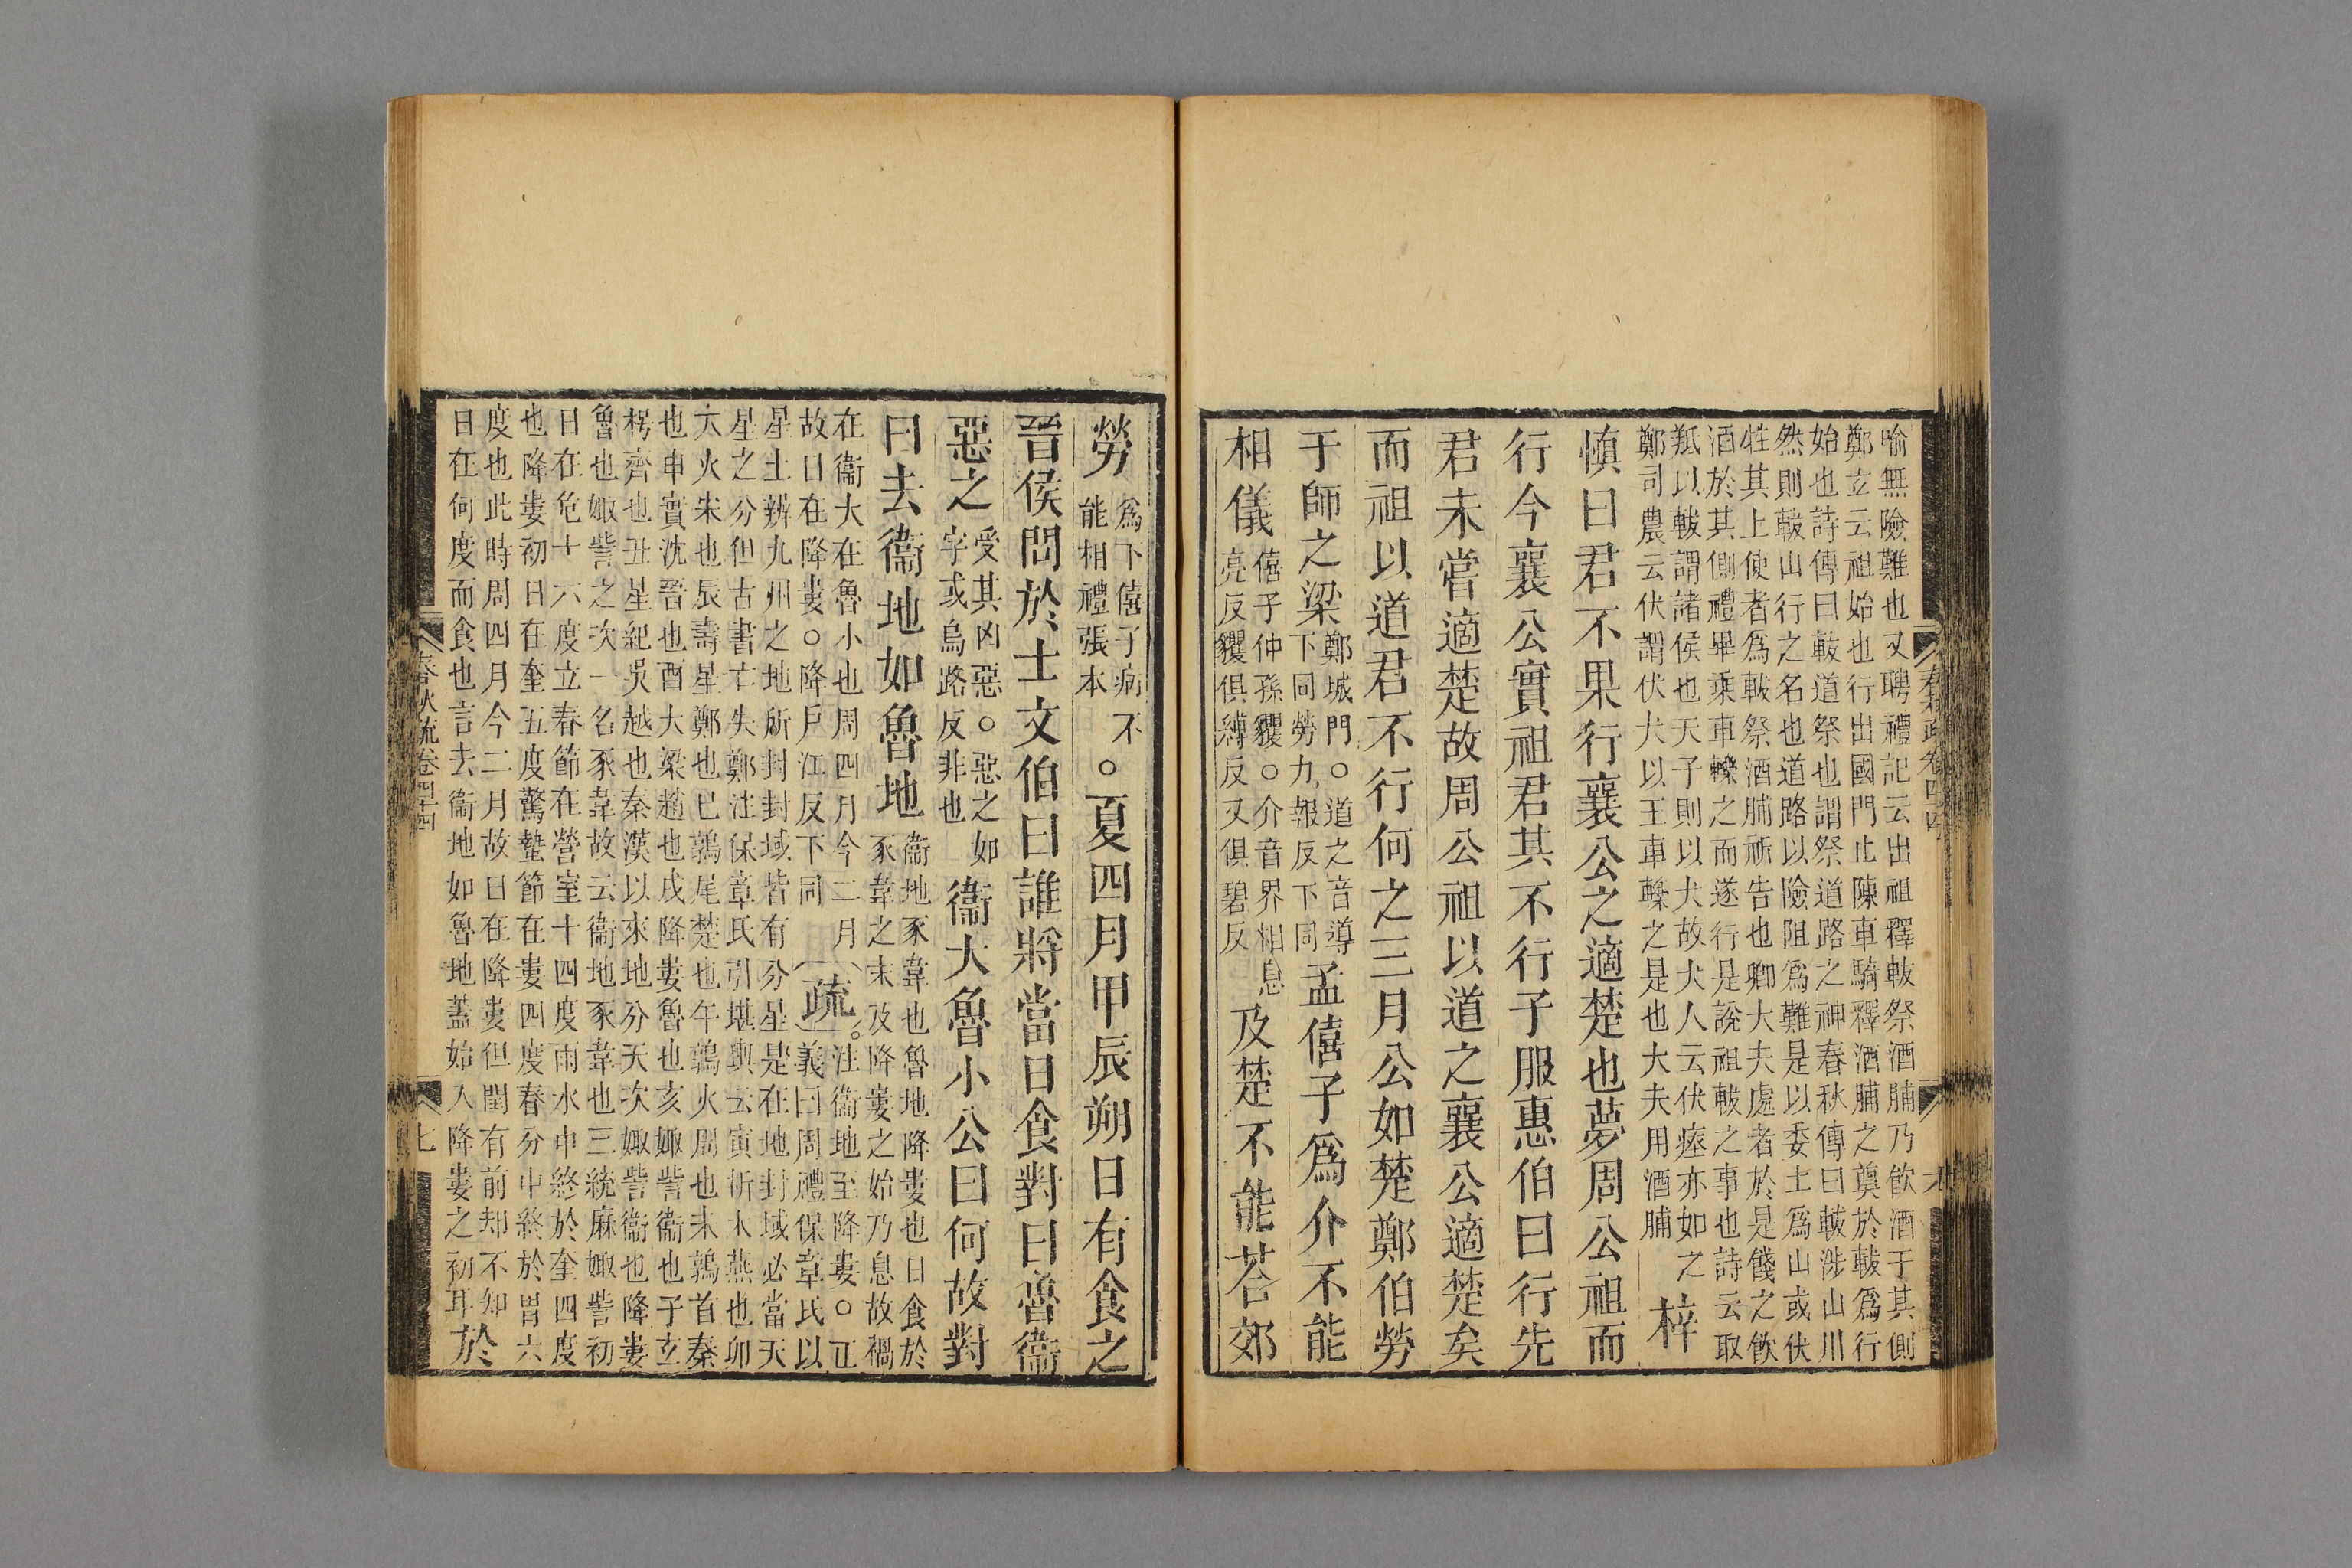 喻無險難也又聘禮記云出祖釋軷祭酒脯乃飮酒于其側
鄭玄云祖始也行出國門止陳車騎釋酒脯之奠於軷爲行
始也詩傳曰軷道祭也謂祭道路之神春秋傳曰軷涉山川
然則軷山行之名也道路以險阻爲難是以委土爲山或伏
牲其上使者爲軷祭酒脯祈告也卿大夫處者於是餞之飮
酒於其側禮畢乘車轢之而遂行是說祖軷之事也詩云取
羝以軷謂諸侯也天子則以犬故犬人云伏瘞亦如之
鄭司農云伏謂伏犬以王車轢之是也大夫用酒脯
梓
愼曰君不果行襄公之適楚也夢周公祖而
行今襄公實祖君其不行子服惠伯曰行先
君未嘗適楚故周公祖以道之襄公適楚矣
而祖以道君不行何之三月公如楚鄭伯勞
于師之梁鄭城門○道之音導下同勞力報反下同孟僖子爲介不能
相儀僖子仲孫貜○介音界相息亮反貜俱縛反又俱碧反及楚不能荅郊
勞爲下僖子病不能相禮張本○夏四月甲辰朔日有食之
晉侯問於士文伯曰誰將當日食對曰魯衞
惡之受其凶惡○惡之如字或烏路反非也衞大魯小公曰何故對
曰去衞地如魯地衞地豕韋也魯地降婁也日食於豕韋之末及降婁之始乃息故禍
在衞大在魯小也周四月今二月故日在降婁○降戶江反下同
疏
注衞地至降婁○正義曰周禮保章氏以
星土辨九州之地所封封域皆有分星是在地封域必當天
星之分但古書亡失鄭注保章氏引堪輿云寅析木燕也卯
大火宋也辰壽星鄭也巳鶉尾楚也午鶉火周也未鶉首秦
也申實沈晉也酉大梁趙也戌降婁魯也亥娵訾衞也子玄
枵齊也丑星紀吳越也秦漢以來地分天次娵訾衞也降婁
魯也娵訾之次一名豕韋故云衞地豕韋也三統麻娵訾初
日在危十六度立春節在營室十四度雨水中終於奎四度
也降婁初日在奎五度驚蟄節在婁四度春分中終於胃六
度也此時周四月今二月故日在降婁但閏有前却不知
日在何度而食也言去衞地如魯地蓋始入降婁之初耳
於
春秋疏卷四十四
七